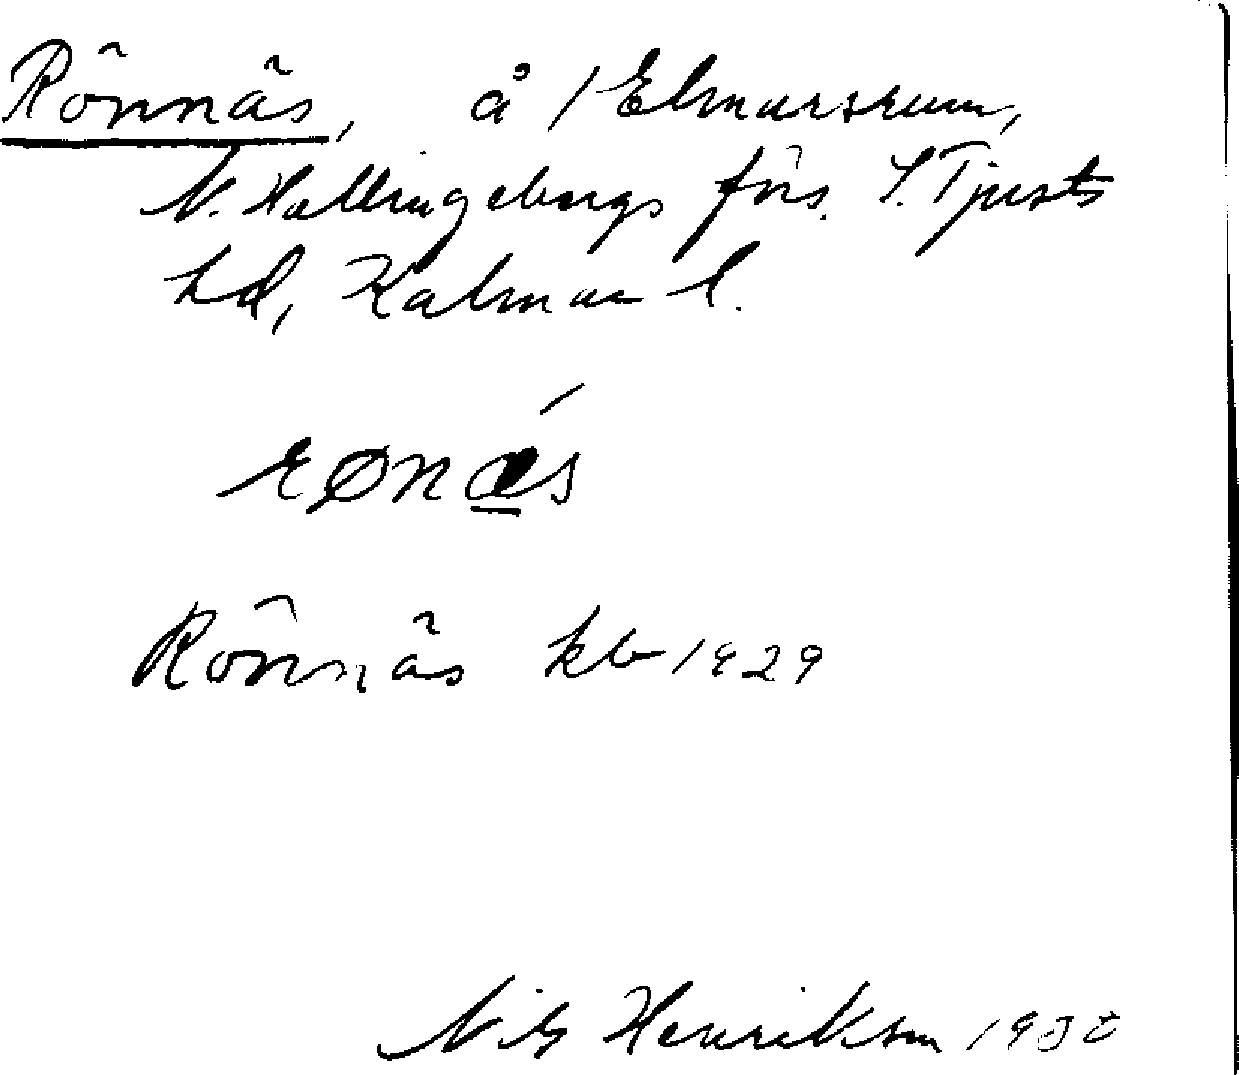 Rönnäs, å /Elmarsrum,
N. Hallingebergs förs. S. Tjusts
hd, Kalmar l.
rønæs
Rönnäs kb 1929
Nils Henriksson 1930